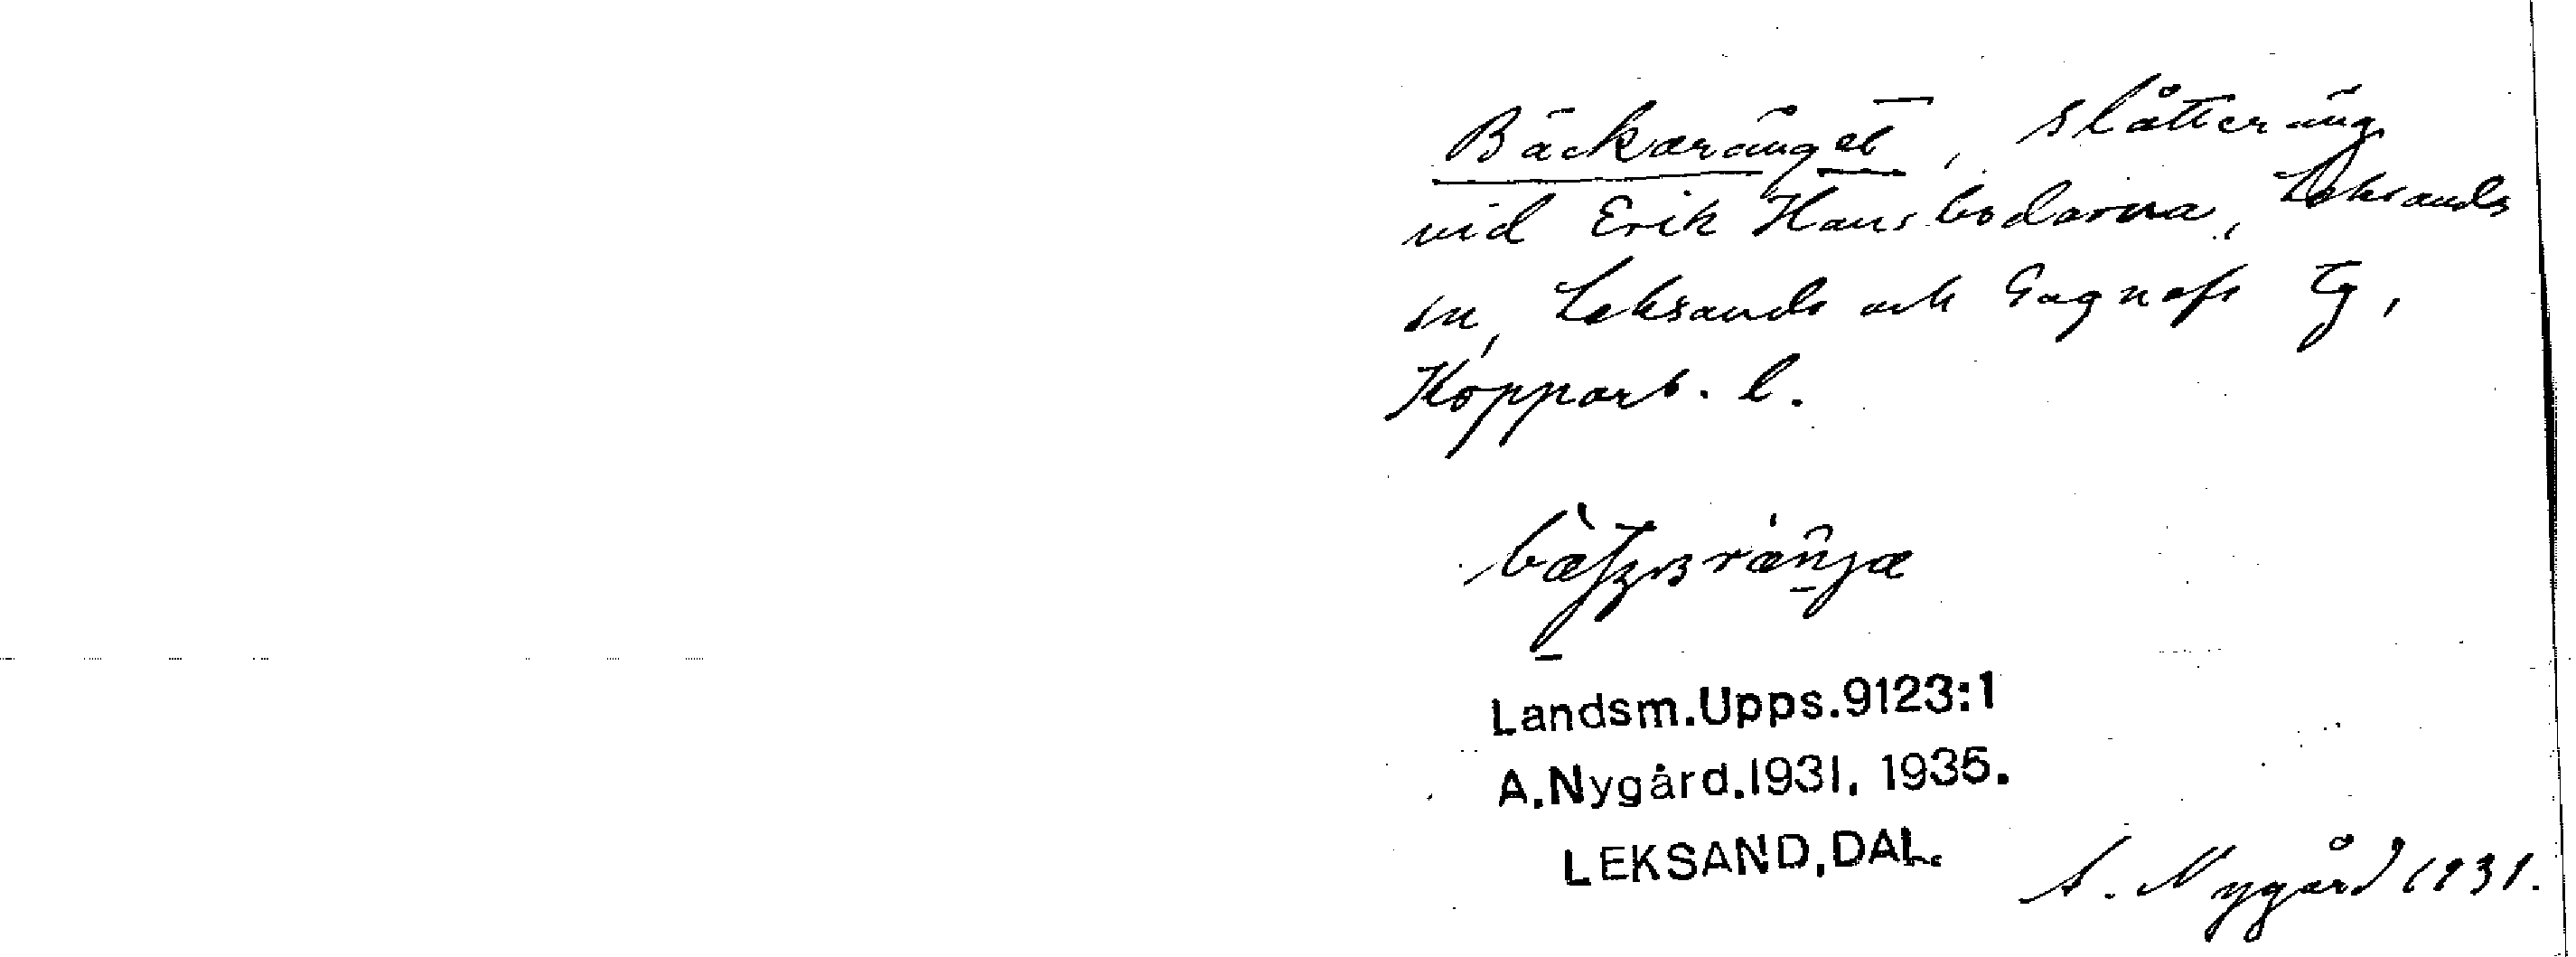 Bäckaränget, slåtteräng
vid Erik Hansbodarna, Leksands
sn, Leksands och Gagnefs tg,
Kopparb. l.
Landsm.Upps.9123:1
A.Nygård.1931, 1935.
LEKSAND,DAL.
A. Nygård 1931.